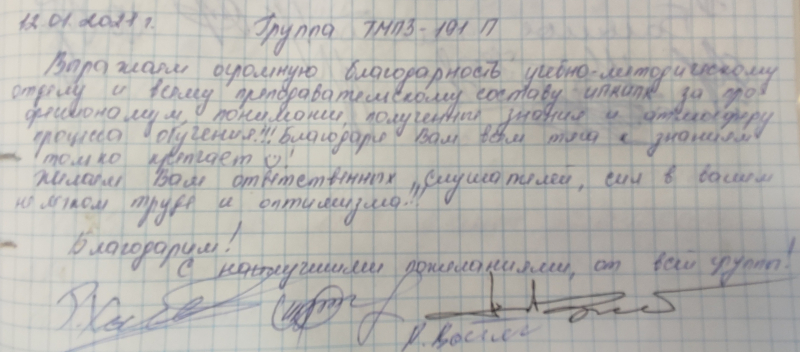 12.01.2021 г. Группа ТМПЗ-191 П
Выражаем огромную благодарность учебно-методическому
отделу и всему преподавательскому составу ИПКиПК за про
фессионализм, понимание, полученные знания и атмосферу
процесса обучения!!! Благодаря Вам всем тяга к знаниям
только крепчает!
Желаем Вам ответственных слушателей, сил в вашем
нелёгком труде и оптимизма!!!
Благодарим!
С наилучшими пожеланиями, от всей группы!